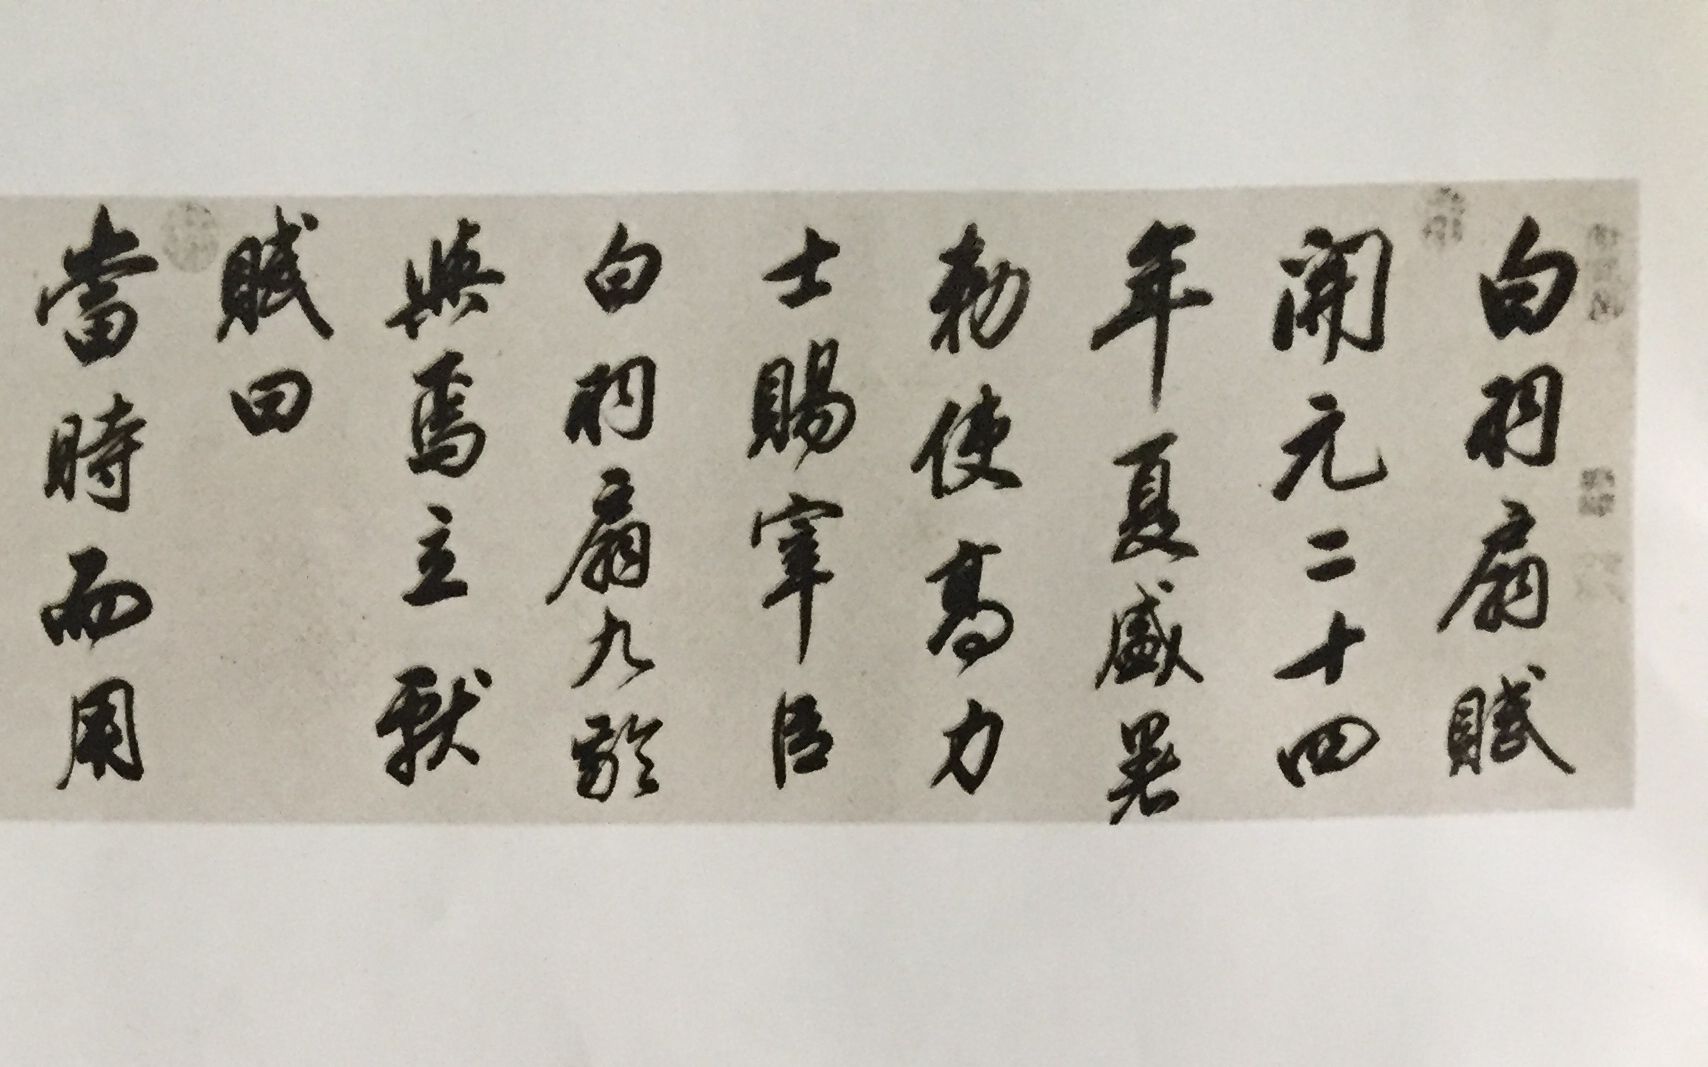 白羽扇賦
開元二十四
年夏盛暑
勅使高力
士賜宰臣
白羽扇九齡
與焉立獻
賦曰
當時而用